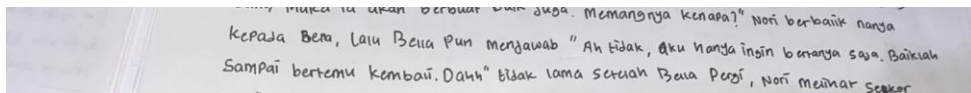 maka ia akan berbuat baik juga. Memangnya kenapa?" Nori berbaiik nanya
kepada Bella, Lalu Bella Pun menjawab "Ah tidak, aku hanya ingin bertanya saja. Baiklah
Sampai bertemu kembali. Dahh" tidak lama setelah Bella Pergi, Nori melihat Seekor